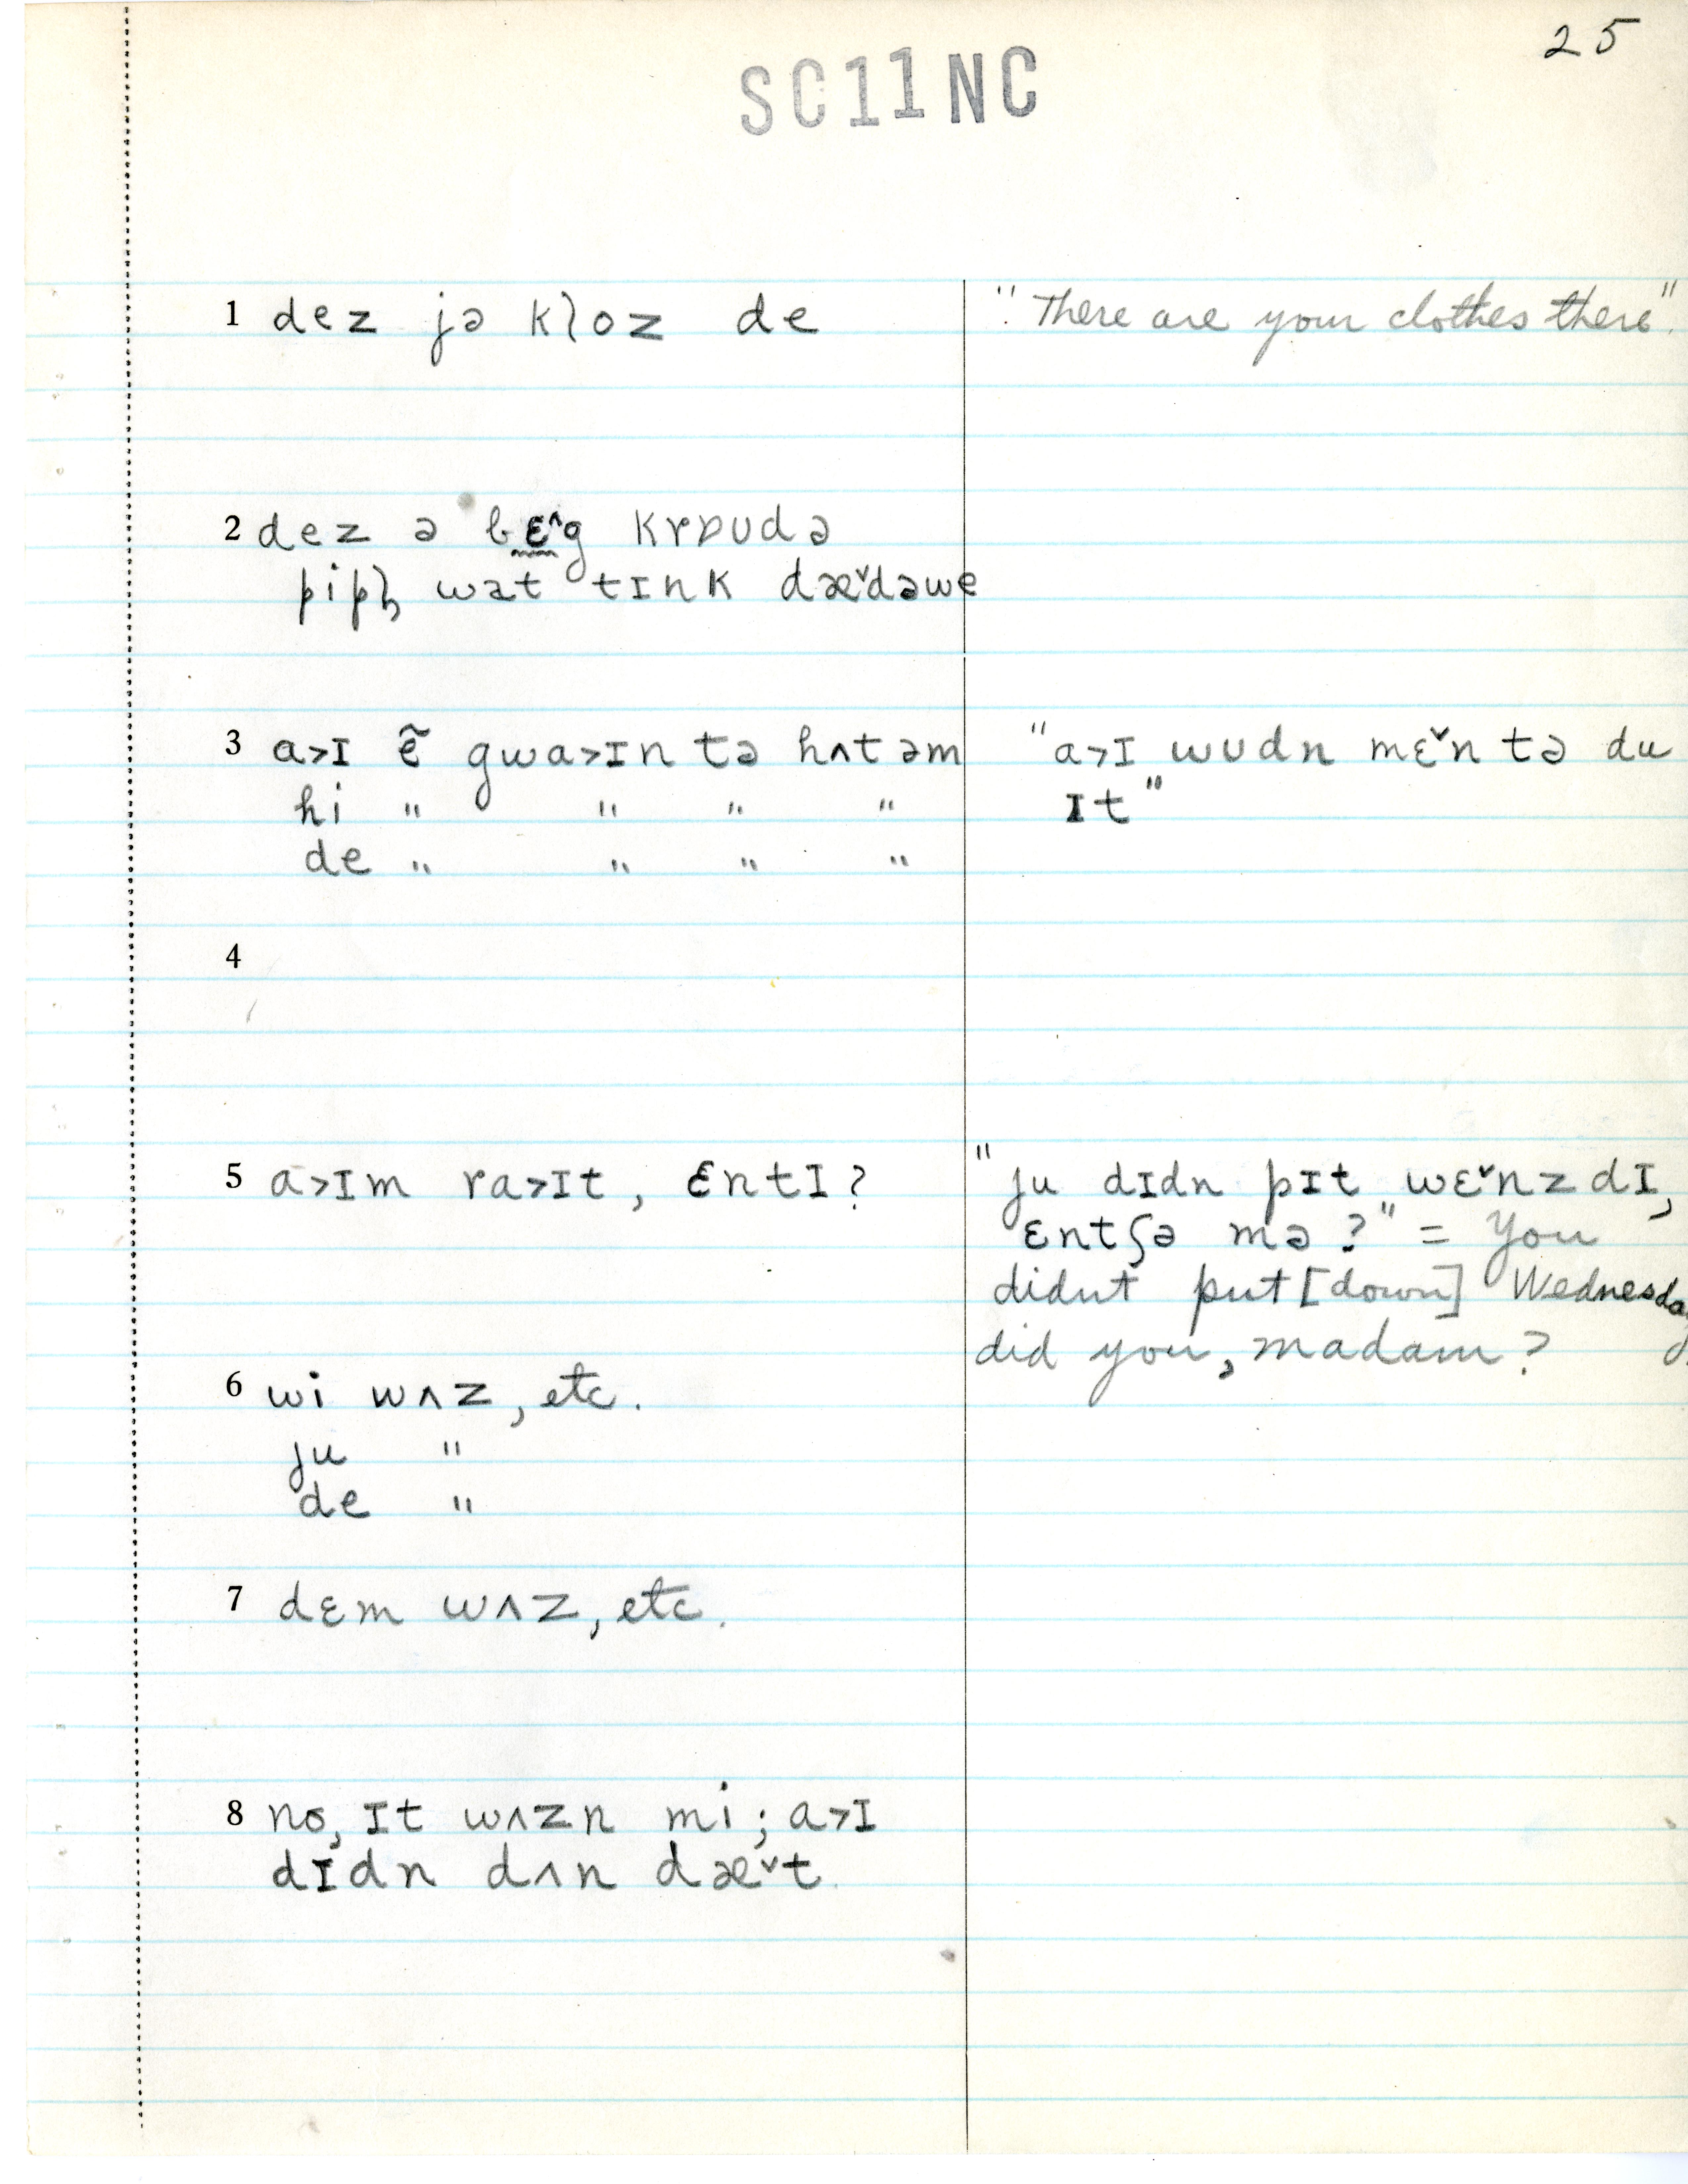 25
SC11NC
1 dez jə kloz de "There are your clothes there".
2 dez ə bɛ^g krɒudə
pipḷ wət tɪnk dæˇdəwe
3 a>ɪ ẽ gwa>ɪn tə hʌt əm "a>ɪ wudn mɛˇn tə du
hi " " " " ɪt"
de " " " "
4
5 a>ɪm ra>ɪt, ɛntɪ? "ju dɪdn pɪt wɛˇnzdɪ,
ɛntʃə mə?" = You
didnt put [down] Wednesday
did you, madam?
6 wi wʌz, etc.
ju "
de "
7 dɛm wʌz, etc.
8 no, ɪt wʌzn mi; a>ɪ
dɪdn dʌn dæˇt.